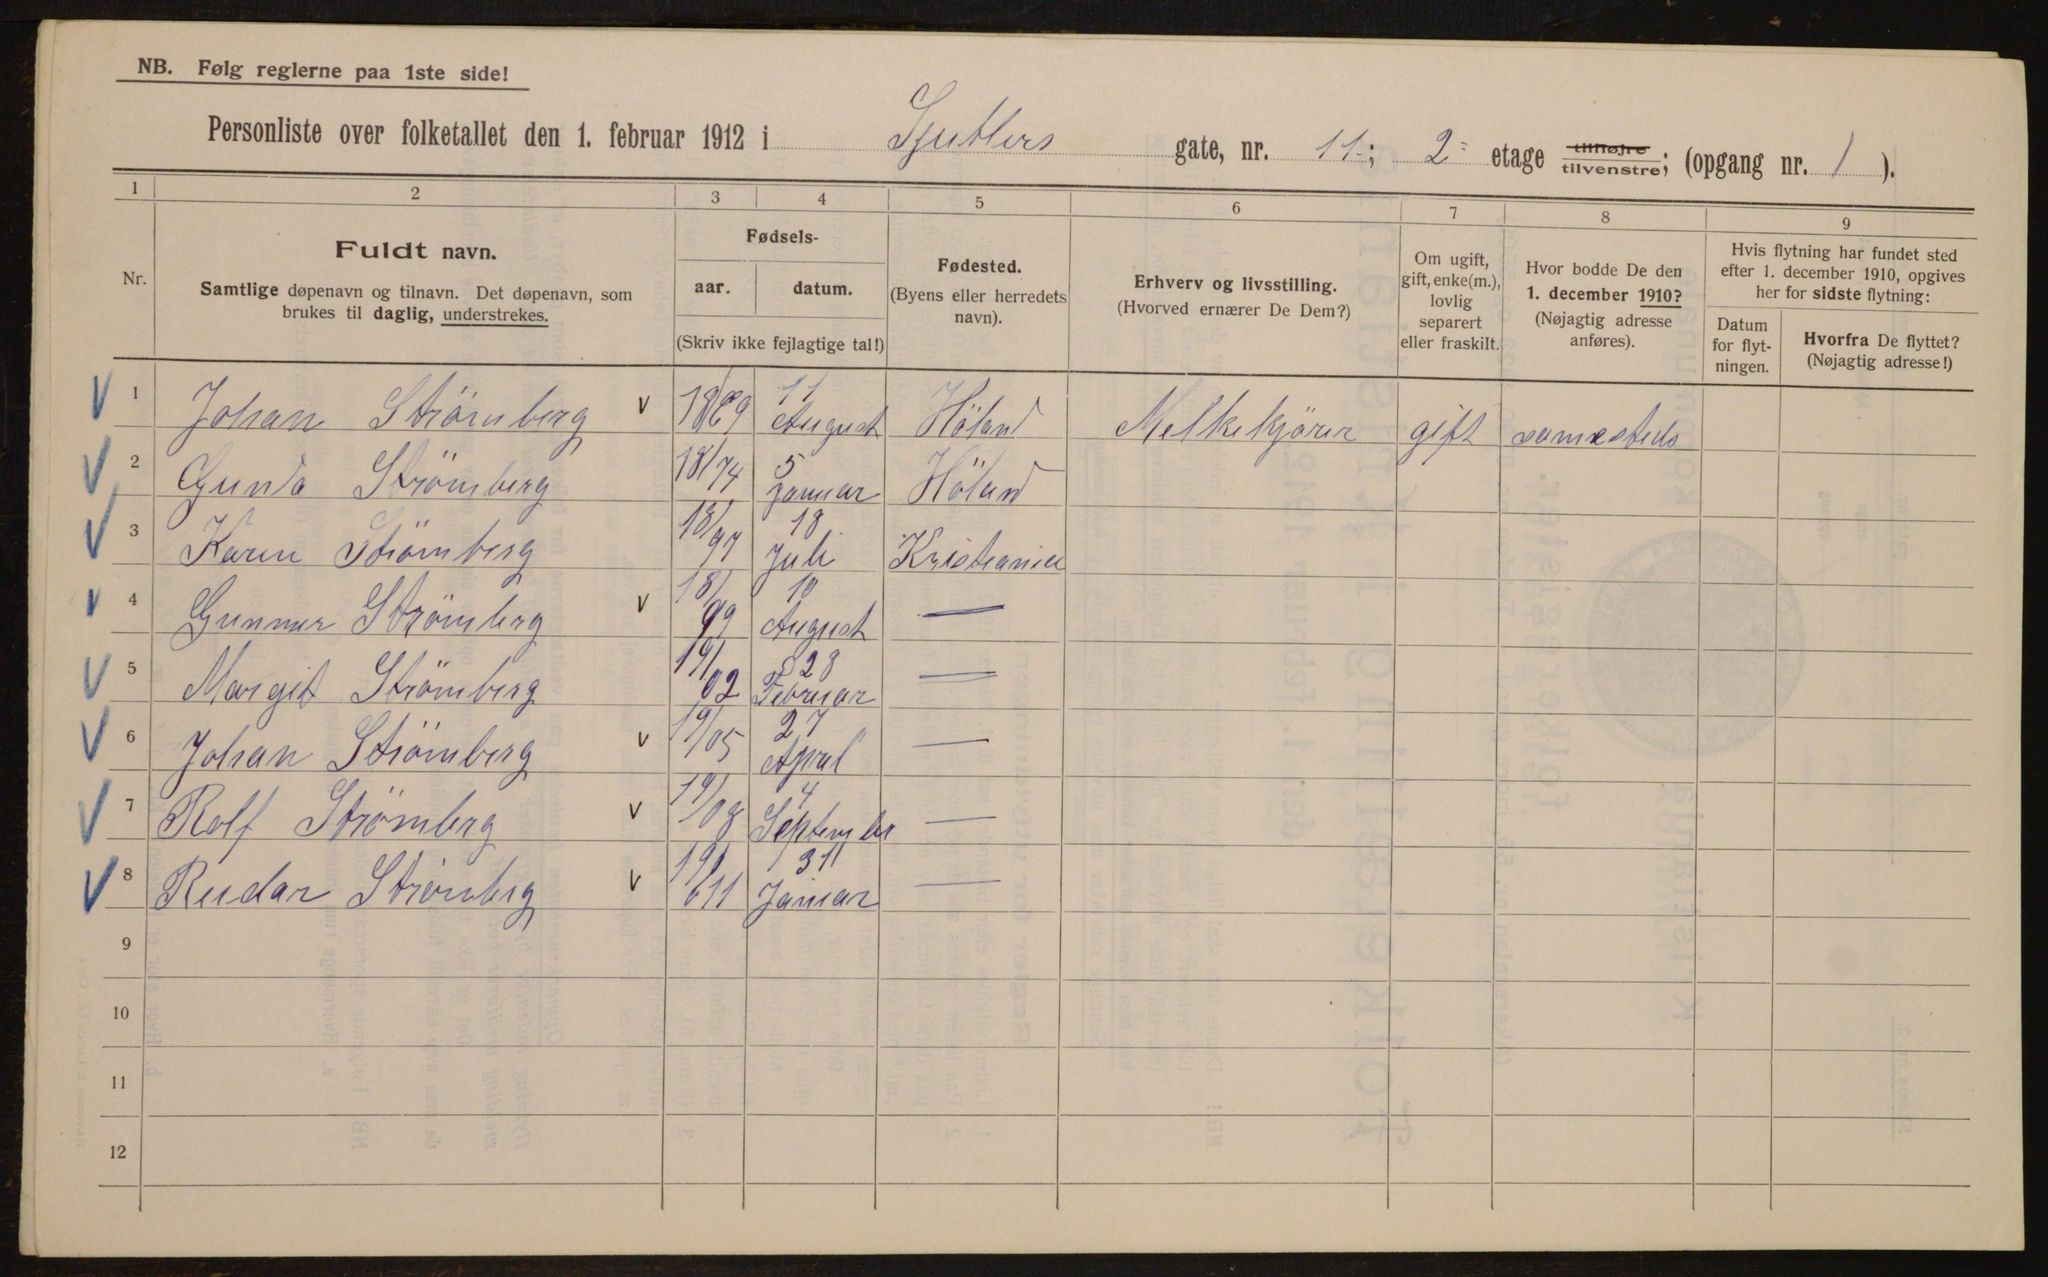 NB. Følg reglerne paa 1ste side!
Personliste over folketallet den 1. februar 1912 i Sjutlers gate, nr. 11; 2 etage tilhøjre/tilvenstre; (opgang nr. 1).
1 2 3 4 5 6 7 8 9
Nr.
Fuldt navn.
Samtlige døpenavn og tilnavn. Det døpenavn, som
brukes til daglig, understrekes.
Fødsels-
aar. datum.
(Skriv ikke fejlagtige tal!)
Fødested.
(Byens eller herredets
navn).
Erhverv og livsstilling.
(Hvorved ernærer De Dem?)
Om ugift,
gift, enke(m.),
lovlig
separert
eller fraskilt.
Hvor bodde De den
1. december 1910?
(Nøjagtig adresse
anføres).
Hvis flytning har fundet sted
efter 1. december 1910, opgives
her for sidste flytning:
Datum
for flyt-
ningen.
Hvorfra De flyttet?
(Nøjagtig adresse!)
1 Johan Strømberg v 11 August Höland Melkekjörer gift samesteds
2 Gunda Strömberg 18/74 5 Januar Höland
3 Karen Strömberg 18/97 18 Juli Kristiania
4 Gunnar Strömberg v 18/99 10 August —
5 Margit Strömberg 19/02 28 Februar —
6 Johan Strömberg v 19/05 27 April —
7 Rolf Strömberg v 19/08 4 September —
8 Reidar Strömberg v 1911 31 Januar —
9
10
11
12